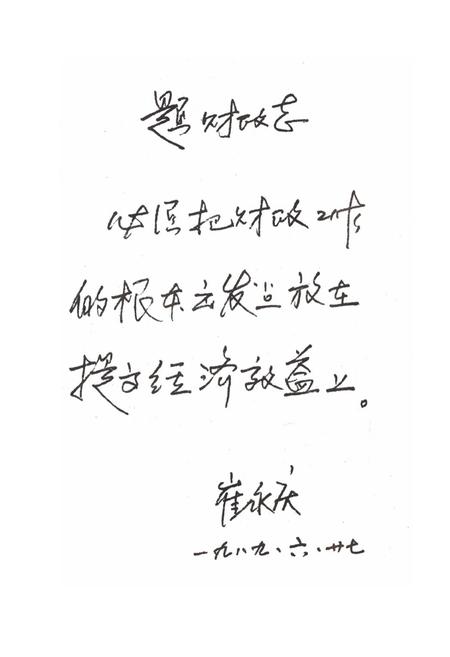 题财政志
必须把财政工作
的根本出发点放在
提高经济效益上。
崔永庆
一九八九、六、廿七